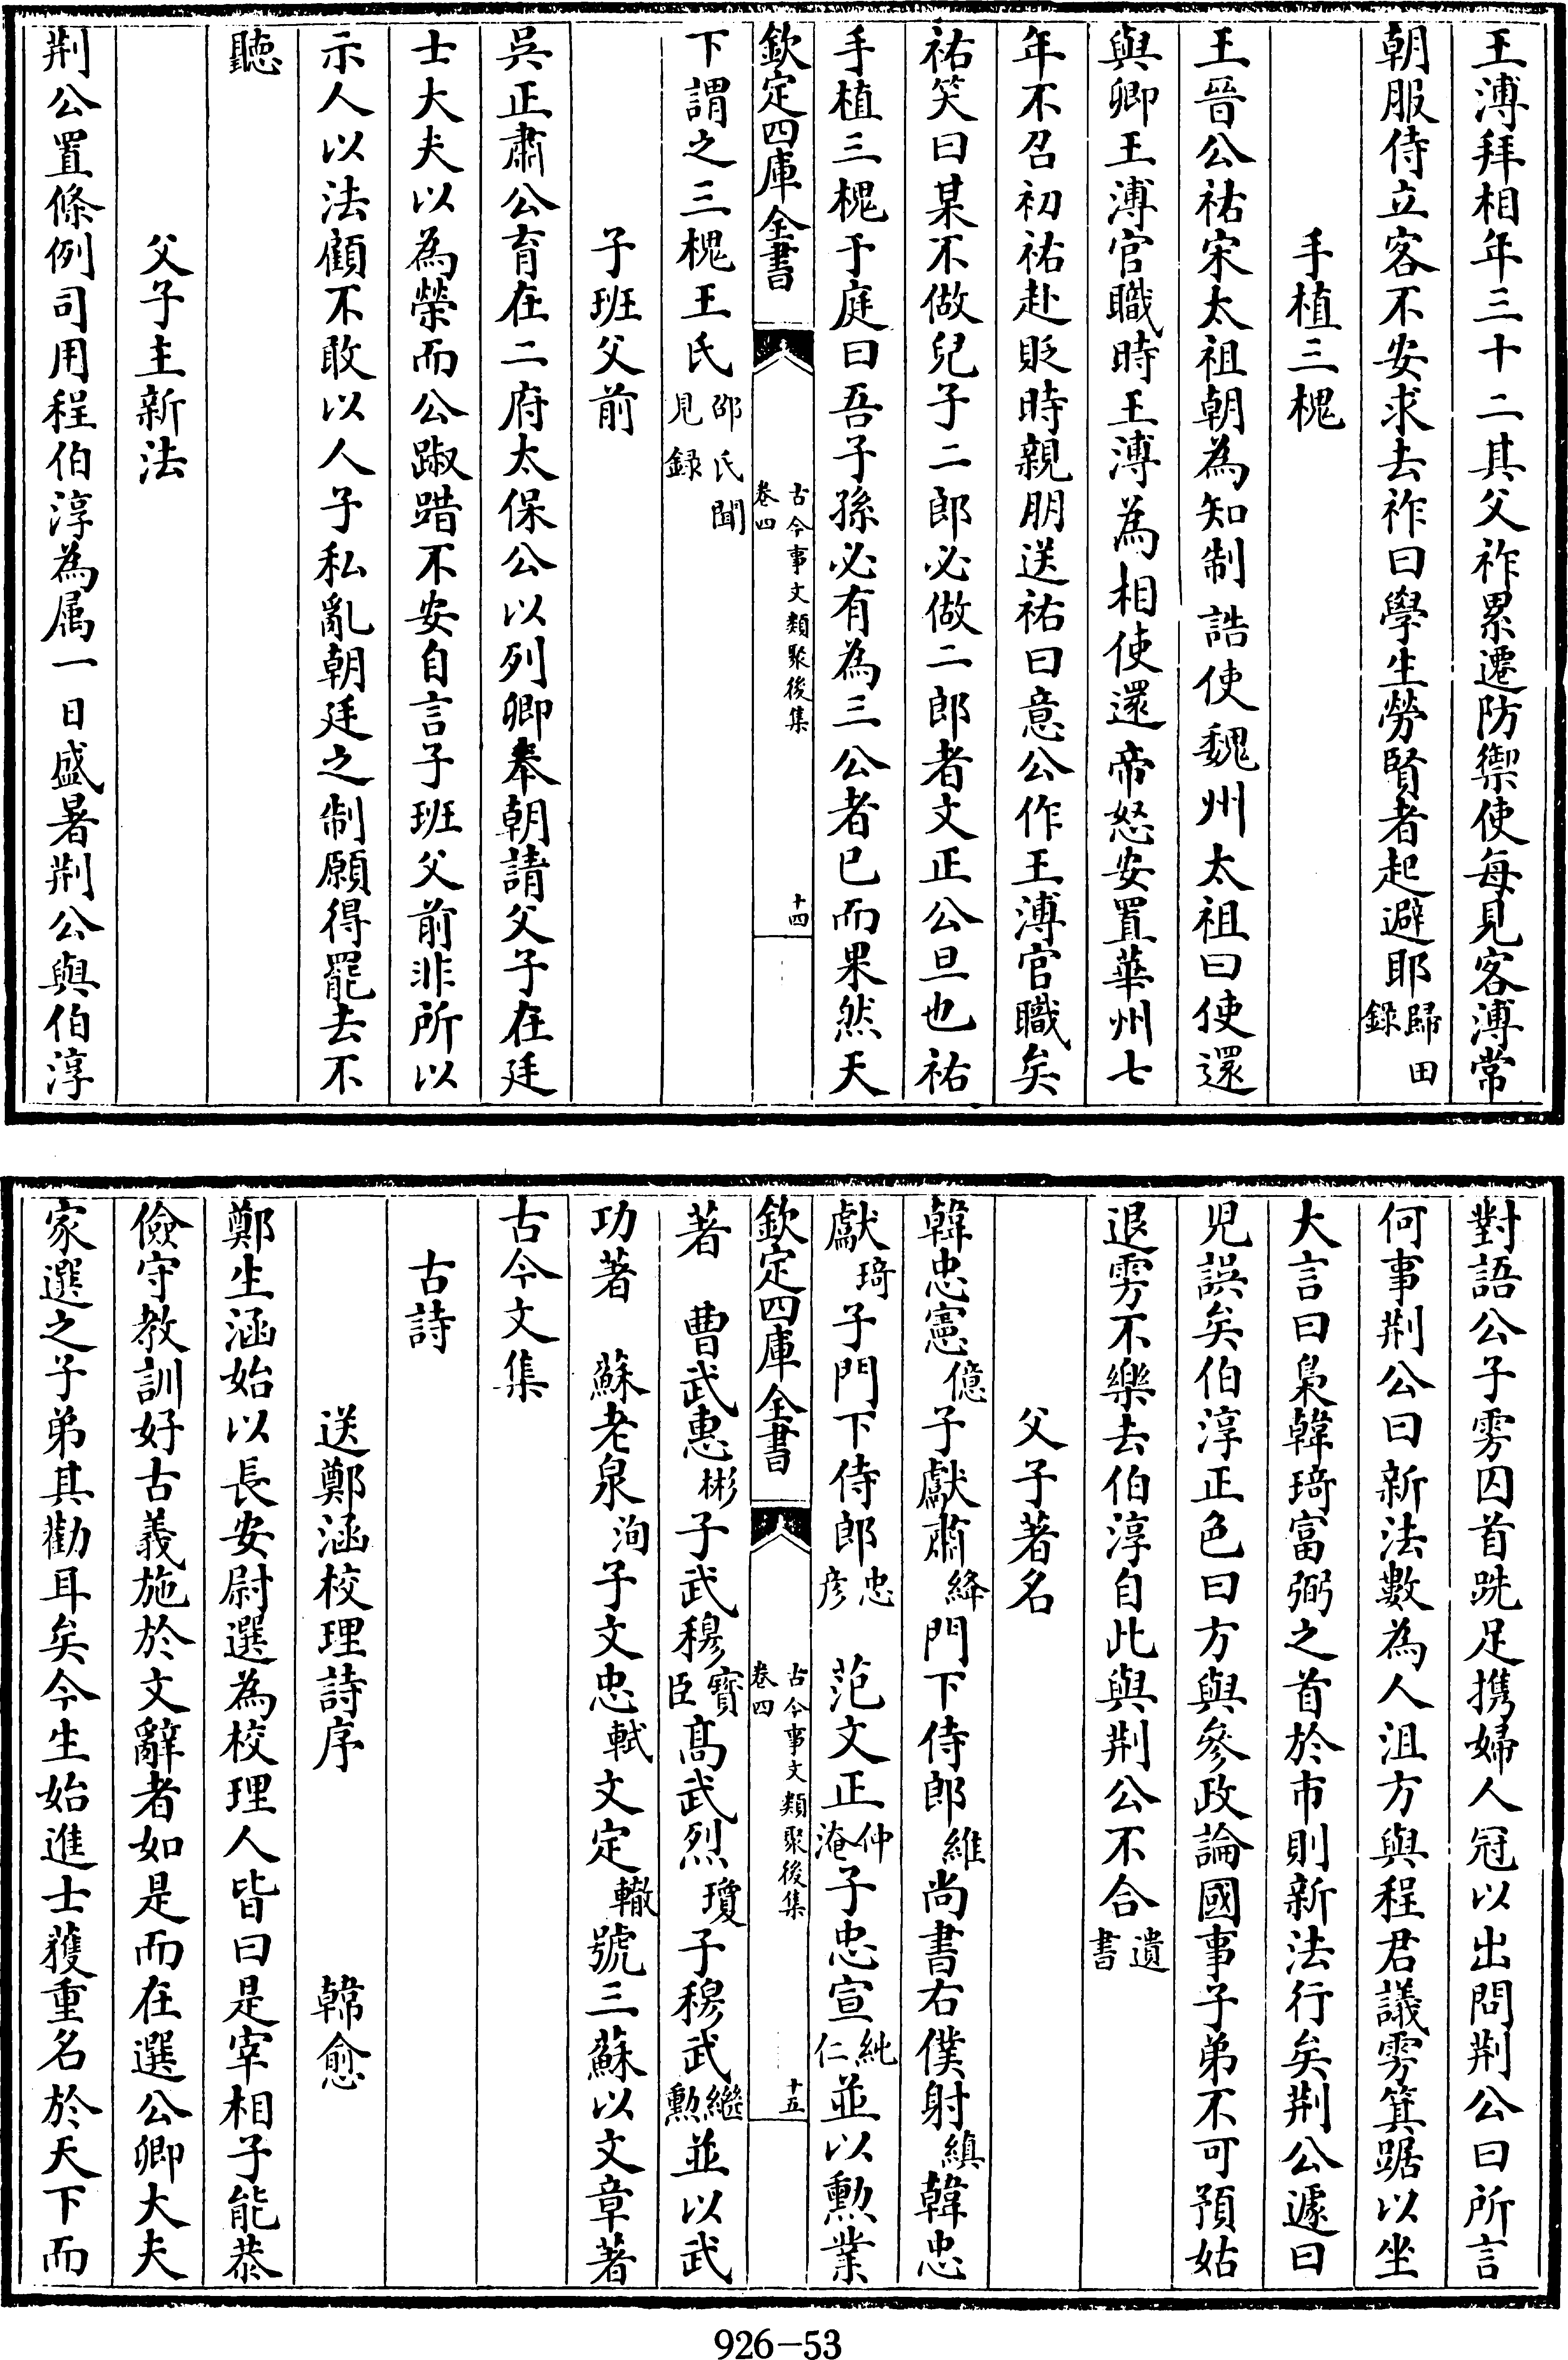 王溥拜相年三十二其父祚累遷防禦使每見客溥常
朝服侍立客不安求去祚曰學生勞賢者起避耶歸田錄
手植三槐
王晉公祐宋太祖朝為知制誥使魏州太祖曰使還
與卿王溥官職時王溥為相使還帝怒安置華州七
年不召初祐赴貶時親朋送祐曰意公作王溥官職矣
祐笑曰某不做兒子二郎必做二郎者文正公旦也祐
手植三槐于庭曰吾子孫必有為三公者已而果然天
欽定四庫全書 古今事文類聚後集 卷四 十四
下謂之三槐王氏邵氏聞見錄
子班父前
吳正肅公育在二府太保公以列卿奉朝請父子在廷
士大夫以為榮而公踧踖不安自言子班父前非所以
示人以法顧不敢以人子私亂朝廷之制願得罷去不
聽
父子主新法
荆公置條例司用程伯淳為属一日盛暑荆公與伯淳
對語公子雱囚首跣足携婦人冠以出問荆公曰所言
何事荆公曰新法數為人沮方與程君議雱箕踞以坐
大言曰梟韓琦富弼之首於市則新法行矣荆公遽曰
児誤矣伯淳正色曰方與參政論國事子弟不可預姑
退雱不樂去伯淳自此與荆公不合遺書
父子著名
韓忠憲億子獻肅絳門下侍郎維尚書右僕射縝韓忠
獻琦子門下侍郎忠彦 范文正仲淹子忠宣純仁並以勲業
欽定四庫全書 古今事文類聚後集 卷四 十五
著 曹武惠彬子武穆寳臣髙武烈瓊子穆武繼勲並以武
功著 蘇老泉洵子文忠軾文定轍號三蘇以文章著
古今文集
古詩
送鄭涵校理詩序 韓愈
鄭生涵始以長安尉選為校理人皆曰是宰相子能恭
儉守教訓好古義施於文辭者如是而在選公卿大夫
家選之子弟其勸耳矣今生始進士獲重名於天下而
926-53